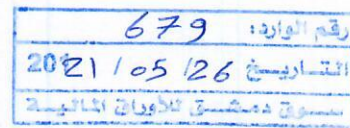 رقم الوارد: 679
التاريخ 2021 / 05 / 26
سوق دمشق للأوراق المالية